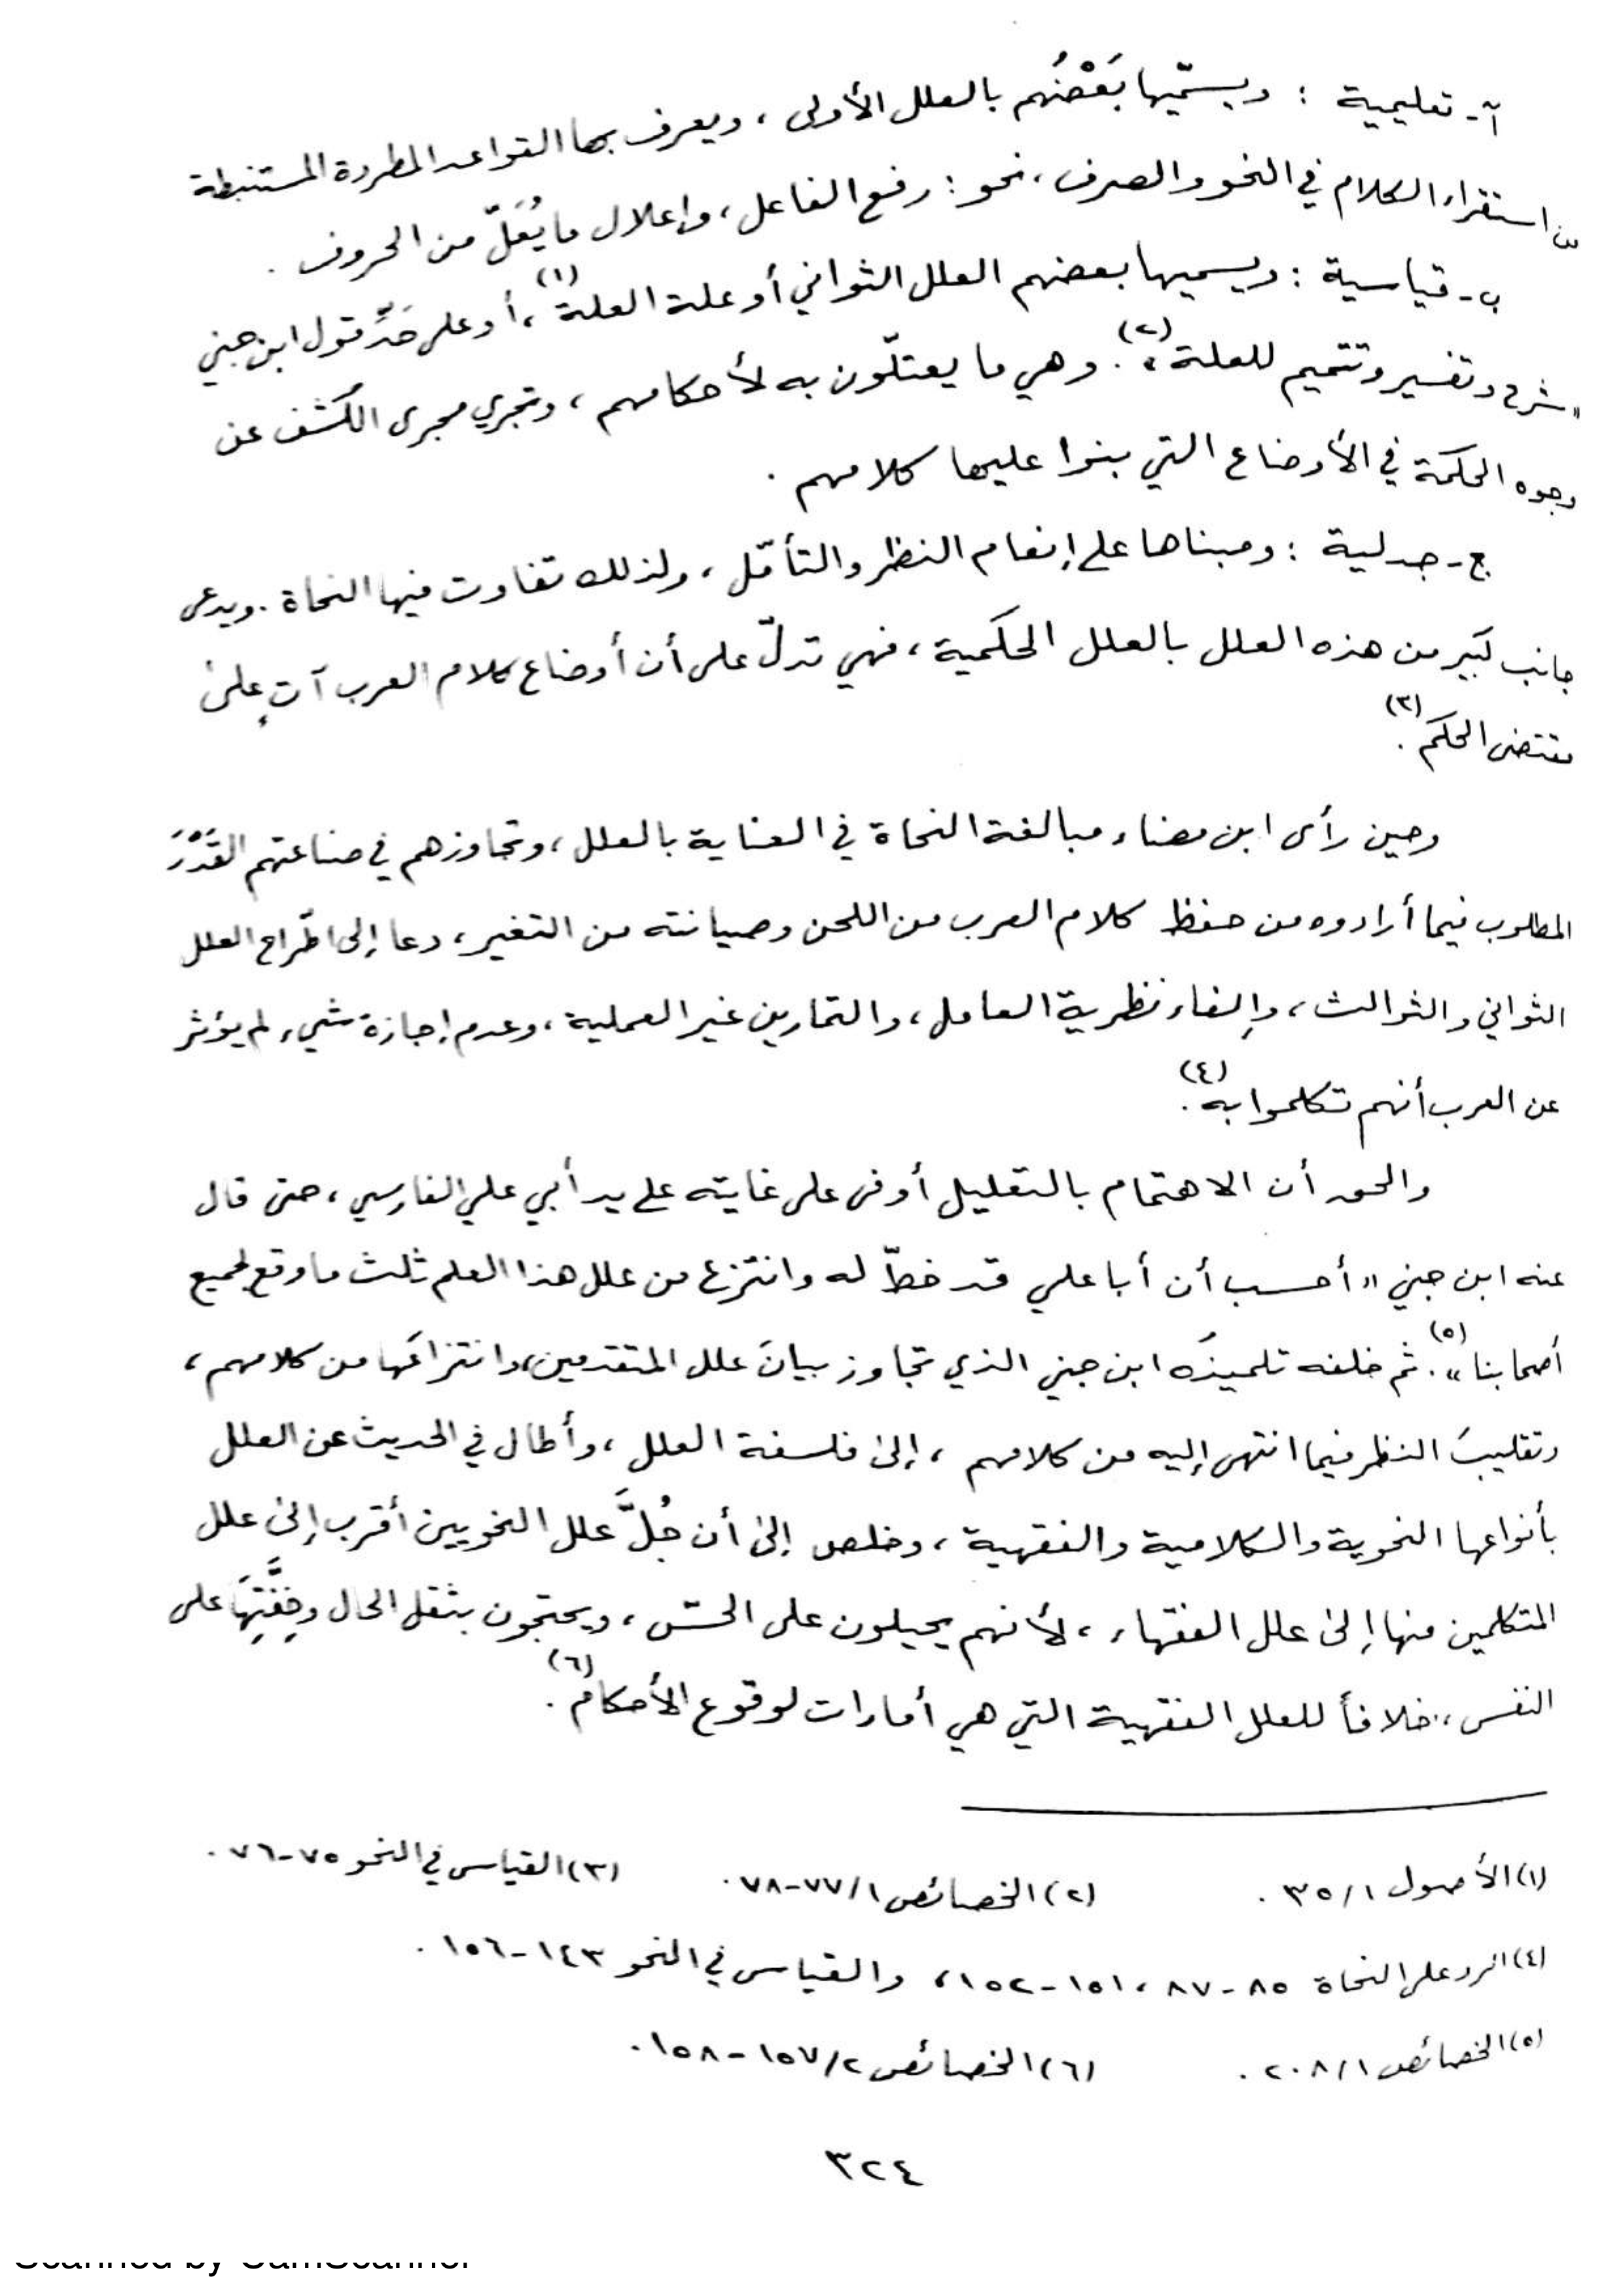 آ- تعليمية : ويسمّيها بَعْضُهم بالعلل الأولى ، ويعرف بها القواعد المطردة المستنبطة
من استقراء الكلام في النحو والصرف ، نحو : رفع الفاعل ، وإعلال ما يُعَلّ من الحروف .
ب- قياسية : ويسميها بعضهم العلل الثواني أو علة العلة (١) ، أو على حَدِّ قول ابن جني
« شرح وتفسير وتتميم للعلة » (٢) . وهي ما يعتلّون به لأحكامهم ، وتجري مجرى الكشف عن
وجوه الحكمة في الأوضاع التي بنوا عليها كلامهم .
ج- جدلية : ومبناها على إنعام النظر والتأمّل ، ولذلك تفاوت فيها النحاة . ويدعى
جانب كبير من هذه العلل بالعلل الحكمية ، فهي تدلّ على أن أوضاع كلام العرب آتٍ على
مقتضى الحكم (٣) .
وحين رأى ابن مضاء مبالغة النحاة في العناية بالعلل ، وتجاوزهم في صناعتهم القَدْرَ
المطلوب فيما أرادوه من حفظ كلام العرب من اللحن وصيانته من التغير ، دعا إلى اطّراح العلل
الثواني والثوالث ، وإلغاء نظرية العامل ، والتمارين غير العملية ، وعدم إجازة شيء لم يؤثر
عن العرب أنهم تكلموا به (٤) .
والحق أن الاهتمام بالتعليل أوفى على غايته على يد أبي علي الفارسي ، حتى قال
عنه ابن جني « أحسب أن أبا علي قد خطّ له وانتزع من علل هذا العلم ثلث ما وقع لجميع
أصحابنا » (٥) . ثم خلفه تلميذُه ابن جني الذي تجاوز بيانَ علل المتقدمين، وانتزاعَها من كلامهم ،
وتقليبَ النظر فيما انتهى إليه من كلامهم ، إلى فلسفة العلل ، وأطال في الحديث عن العلل
بأنواعها النحوية والكلامية والفقهية ، وخلص إلى أن جُلَّ علل النحويين أقرب إلى علل
المتكلمين منها إلى علل الفقهاء ، لأنهم يحيلون على الحسّ ، ويحتجون بثقل الحال وخِفَّتِهَا على
النفس ، خلافاً للعلل الفقهية التي هي أمارات لوقوع الأحكام (٦) .
(١) الأصول ٣٥/١ . (٢) الخصائص ٧٧/١-٧٨ . (٣) القياس في النحو ٧٥-٧٦ .
(٤) الرد على النحاة ٨٥-٨٧ ، ١٥١-١٥٢ ، والقياس في النحو ١٤٣-١٥٦ .
(٥) الخصائص ٢٠٨/١ . (٦) الخصائص ١٥٧/٢-١٥٨ .
٣٢٤
Scanned by CamScanner